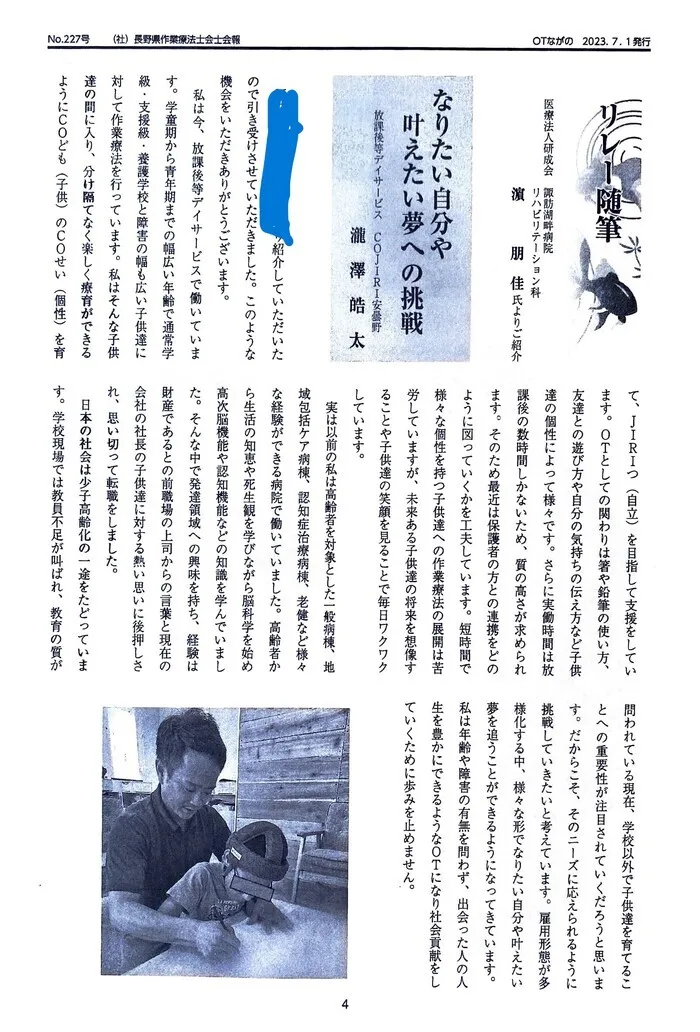 No.227号 （社）長野県作業療法士会士会報
OTながの 2023.7.1発行
リレー随筆
医療法人研成会 諏訪湖畔病院
リハビリテーション科
濵 朋佳氏よりご紹介
なりたい自分や
叶えたい夢への挑戦
放課後等デイサービス COJIRI安曇野
瀧澤皓太
紹介していただいた
ので引き受けさせていただきました。このような
機会をいただきありがとうございます。
私は今、放課後等デイサービスで働いていま
す。学童期から青年期までの幅広い年齢で通常学
級・支援級・養護学校と障害の幅も広い子供達に
対して作業療法を行っています。私はそんな子供
達の間に入り、分け隔てなく楽しく療育ができる
ようにCOども（子供）のCOせい（個性）を育
て、JIRIつ（自立）を目指して支援をしてい
ます。OTとしての関わりは箸や鉛筆の使い方、
友達との遊び方や自分の気持ちの伝え方など子供
達の個性によって様々です。さらに実働時間は放
課後の数時間しかないため、質の高さが求められ
ます。そのため最近は保護者の方との連携をどの
ように図っていくかを工夫しています。短時間で
様々な個性を持つ子供達への作業療法の展開は苦
労していますが、未来ある子供達の将来を想像す
ることや子供達の笑顔を見ることで毎日ワクワク
しています。
実は以前の私は高齢者を対象とした一般病棟、地
域包括ケア病棟、認知症治療病棟、老健など様々
な経験ができる病院で働いていました。高齢者か
ら生活の知恵や死生観を学びながら脳科学を始め
高次脳機能や認知機能などの知識を学んでいまし
た。そんな中で発達領域への興味を持ち、経験は
財産であるとの前職場の上司からの言葉と現在の
会社の社長の子供達に対する熱い思いに後押しさ
れ、思い切って転職をしました。
日本の社会は少子高齢化の一途をたどっていま
す。学校現場では教員不足が叫ばれ、教育の質が
問われている現在、学校以外で子供達を育てるこ
とへの重要性が注目されていくだろうと思いま
す。だからこそ、そのニーズに応えられるように
挑戦していきたいと考えています。雇用形態が多
様化する中、様々な形でなりたい自分や叶えたい
夢を追うことができるようになってきています。
私は年齢や障害の有無を問わず、出会った人の人
生を豊かにできるようなOTになり社会貢献をし
ていくために歩みを止めません。
4